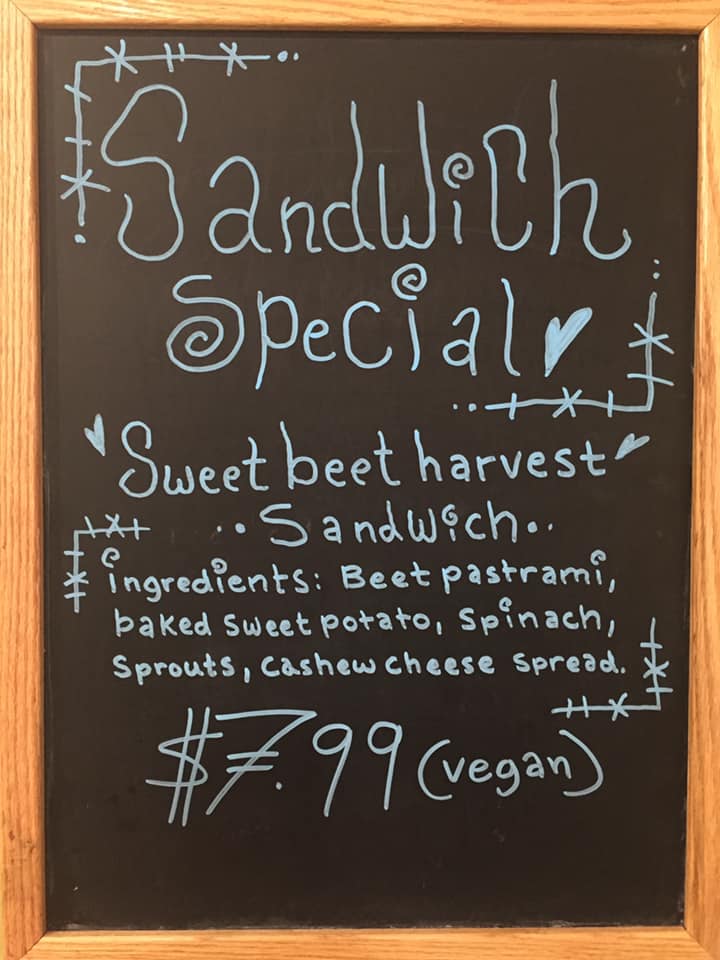 Sandwich
Special
Sweet beet harvest
Sandwich
ingredients: Beet pastrami,
baked sweet potato, spinach,
sprouts, cashew cheese spread.
$7.99 (vegan)